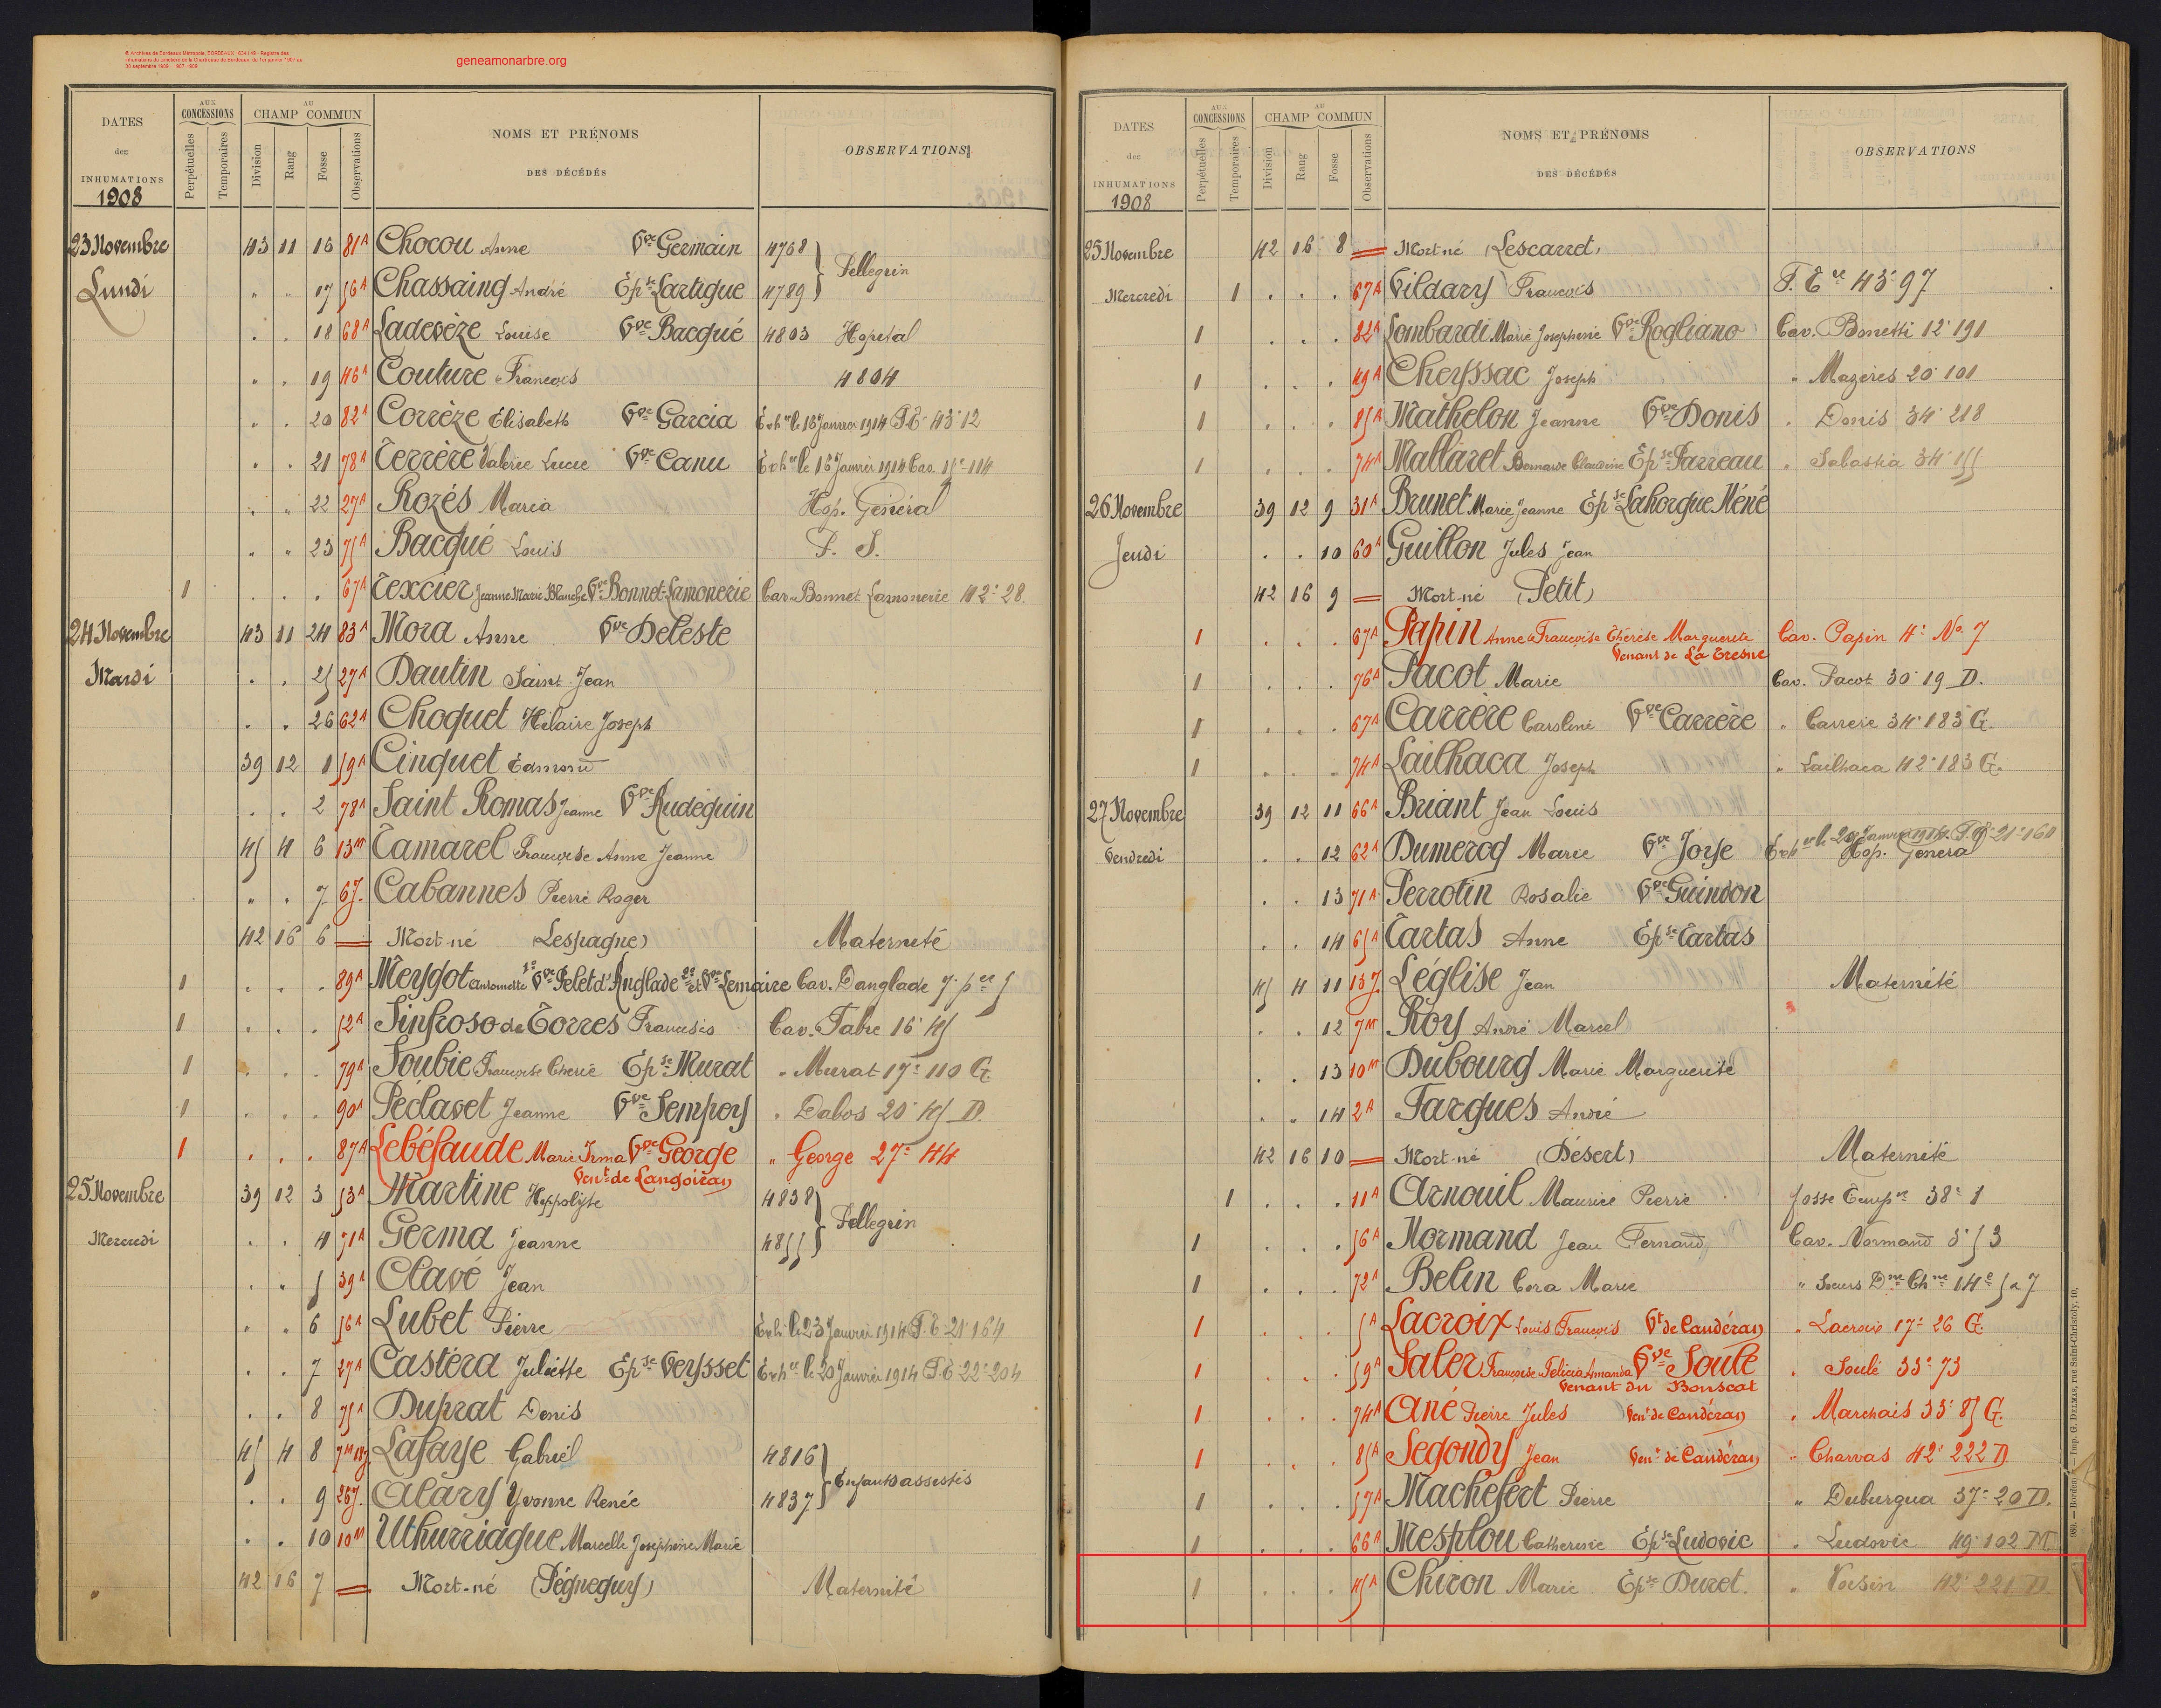 © Archives de Bordeaux Métropole, BORDEAUX 1634 I 46 - Registre des
inhumations du cimetière de la Chartreuse de Bordeaux, du 1er janvier 1907 au
30 septembre 1909 - 1907-1909
geneamonarbre.org
DATES des INHUMATIONS 1908
AUX CONCESSIONS Perpétuelles Temporaires
AU CHAMP COMMUN Division Rang Fosse Observations
NOMS ET PRÉNOMS DES DÉCÉDÉS
OBSERVATIONS
23 Novembre 43 11 16 81A Chocou Anne Vve Germain 4768
Lundi " " 17 56A Chassaing André Épse Lartigue 4789 Pellegrin
. . 18 68A Ladevèze Louise Vve Bacqué 4803 Hopital
" . 19 46A Couture François 4804
. . 20 82A Corrèze Élisabeth Vve Garcia Exh. le 18 Janvier 1914 T.E. 43e 12
. . 21 78A Terrère Valérie Lucie Vve Canu Exh. le 16 Janvier 1914 Cav. 114
. " 22 27A Rozés Maria Hop. Général
" " 23 75A Bacqué Louis P. S.
1 . . . 67A Texcier Jeanne Marie Blanche Vve Bonnet-Lamonerie Cav. Bonnet Lamonerie 42e 28.
24 Novembre 43 11 24 83A Mora Anne Vve Deleste
Mardi . . 25 27A Dautin Saint Jean
. . 26 62A Choquet Hilaire Joseph
39 12 1 59A Cinquet Edmond
. . 2 78A Saint Romas Jeanne Vve Audéguin
45 4 6 13M Tamarel Françoise Anne Jeanne
" . 7 6J. Cabannes Pierre Roger
42 16 6 Mort-né (Lespagne) Maternité
1 . . . 89A Meygot Antoinette 1º Vve Pelet d'Anglade 2º et Vve Lemaire Cav. Danglade
1 . . . 52A Sinfroso de Torres Cav. Fabre 16e 45
1 . . . 79A Soubie Françoise Épse Murat " Murat 17e 110 G.
1 . . . 90A Péclavet Jeanne Vve Sempoy " Dabos 20e 45 D.
1 . . . 87A Lebéfaude Marie Irma Vve George " George 27e 44
Vent de Langoiran
25 Novembre 39 12 3 53A Martine Hyppolyte 4838
Mercredi . . 4 71A Germa Jeanne 4855 Pellegrin
. " 5 39A Clavé Jean
. " 6 56A Lubet Pierre Exh. le 23 Janvier 1914 T.E. 21e 164
. . 7 27A Castéra Juliette Épse Veysset Exh. le 20 Janvier 1914 T.E. 22e 204
. . 8 75A Duprat Denis
45 4 8 Lafaye Gabriel 4816
. . 9 26J. Alary Yvonne Renée 4837 Enfants assistés
. . 10 10M Uthurriague Marcelle Joséphine Marie
42 16 7 Mort-né (Pégneguy) Maternité
DATES des INHUMATIONS 1908
AUX CONCESSIONS Perpétuelles Temporaires
AU CHAMP COMMUN Division Rang Fosse Observations
NOMS ET PRÉNOMS DES DÉCÉDÉS
OBSERVATIONS
25 Novembre 42 16 8 Mort né (Lescarret)
Mercredi 1 . . . 67A Vildary François T. Ere 43e 97
1 . . . 82A Lombardi Marie Josephine Vve Rogliano Cav. Bonetti 12e 191
1 . . . 49A Cheyssac Joseph " Mazères 20e 101
1 . . . 85A Mathelon Jeanne Vve Donis . Donis 34e 218
1 . . . 74A Mallaret Bernarde Claudine Épse Farreau " Sabastia 34e 155
26 Novembre 39 12 9 31A Brunet Marie Jeanne Épse Lahorgue Néné
Jeudi . . 10 60A Guillon Jules Jean
42 16 9 Mort-né (Petit)
1 . . . 67A Papin Anne Françoise Thérèse Marguerite Cav. Papin 4e No. 7
Venant de La Tresne
1 . . . 76A Pacot Marie Cav. Pacot 30e 19 D.
1 . . . 67A Carrère Caroline Vve Carrère " Carrere 34e 183 G.
1 . . . 74A Lailhaca Joseph " Lailhaca 42e 183 G.
27 Novembre 39 12 11 66A Briant Jean Louis
Vendredi . . 12 62A Dumercq Marie Vve Joyse Hop. Général
. . 13 71A Perrotin Rosalie Vve Guindon
. . 14 65A Tartas Anne Épse Tartas
45 4 11 13J. Léglise Jean Maternité
. . 12 7M Roy André Marcel
. . 13 10M Dubourg Marie Marguerite
. . 14 2A Fargues André
42 16 10 Mort-né (Désert) Maternité
1 . . . 11A Arnouil Maurice Pierre fosse Tempre 38e 1
1 . . . 56A Normand Jean Fernand Cav. Normand
1 . . . 72A Belin Cora Marie " Sœurs Dme Chne 14e 5 a 7
1 . . . 5A Lacroix Louis François Vt de Caudéran " Lacroix 17e 26 G.
1 . . . 59A Saler Françoise Felicia Amanda Vve Soulé . Soulé 33e 73
Venant du Bouscat
1 . . . 74A Ané Pierre Jules Vent de Caudéran " Marchais 33e 85 G.
1 . . . 85A Segondy Jean Vent de Caudéran " Charvas 42e 222 D
1 . . . 57A Machefert Pierre " Duburgua 37e 20 D.
1 . . . 66A Mesplou Catherine Épse Ludovic . Ludovic 49e 102 M.
1 . . . 45A Chiron Marie Épse Duret. " Voisin 42e 221 D.
980. — Bordeaux. — Imp. G. DELMAS, rue Saint-Christoly, 10.